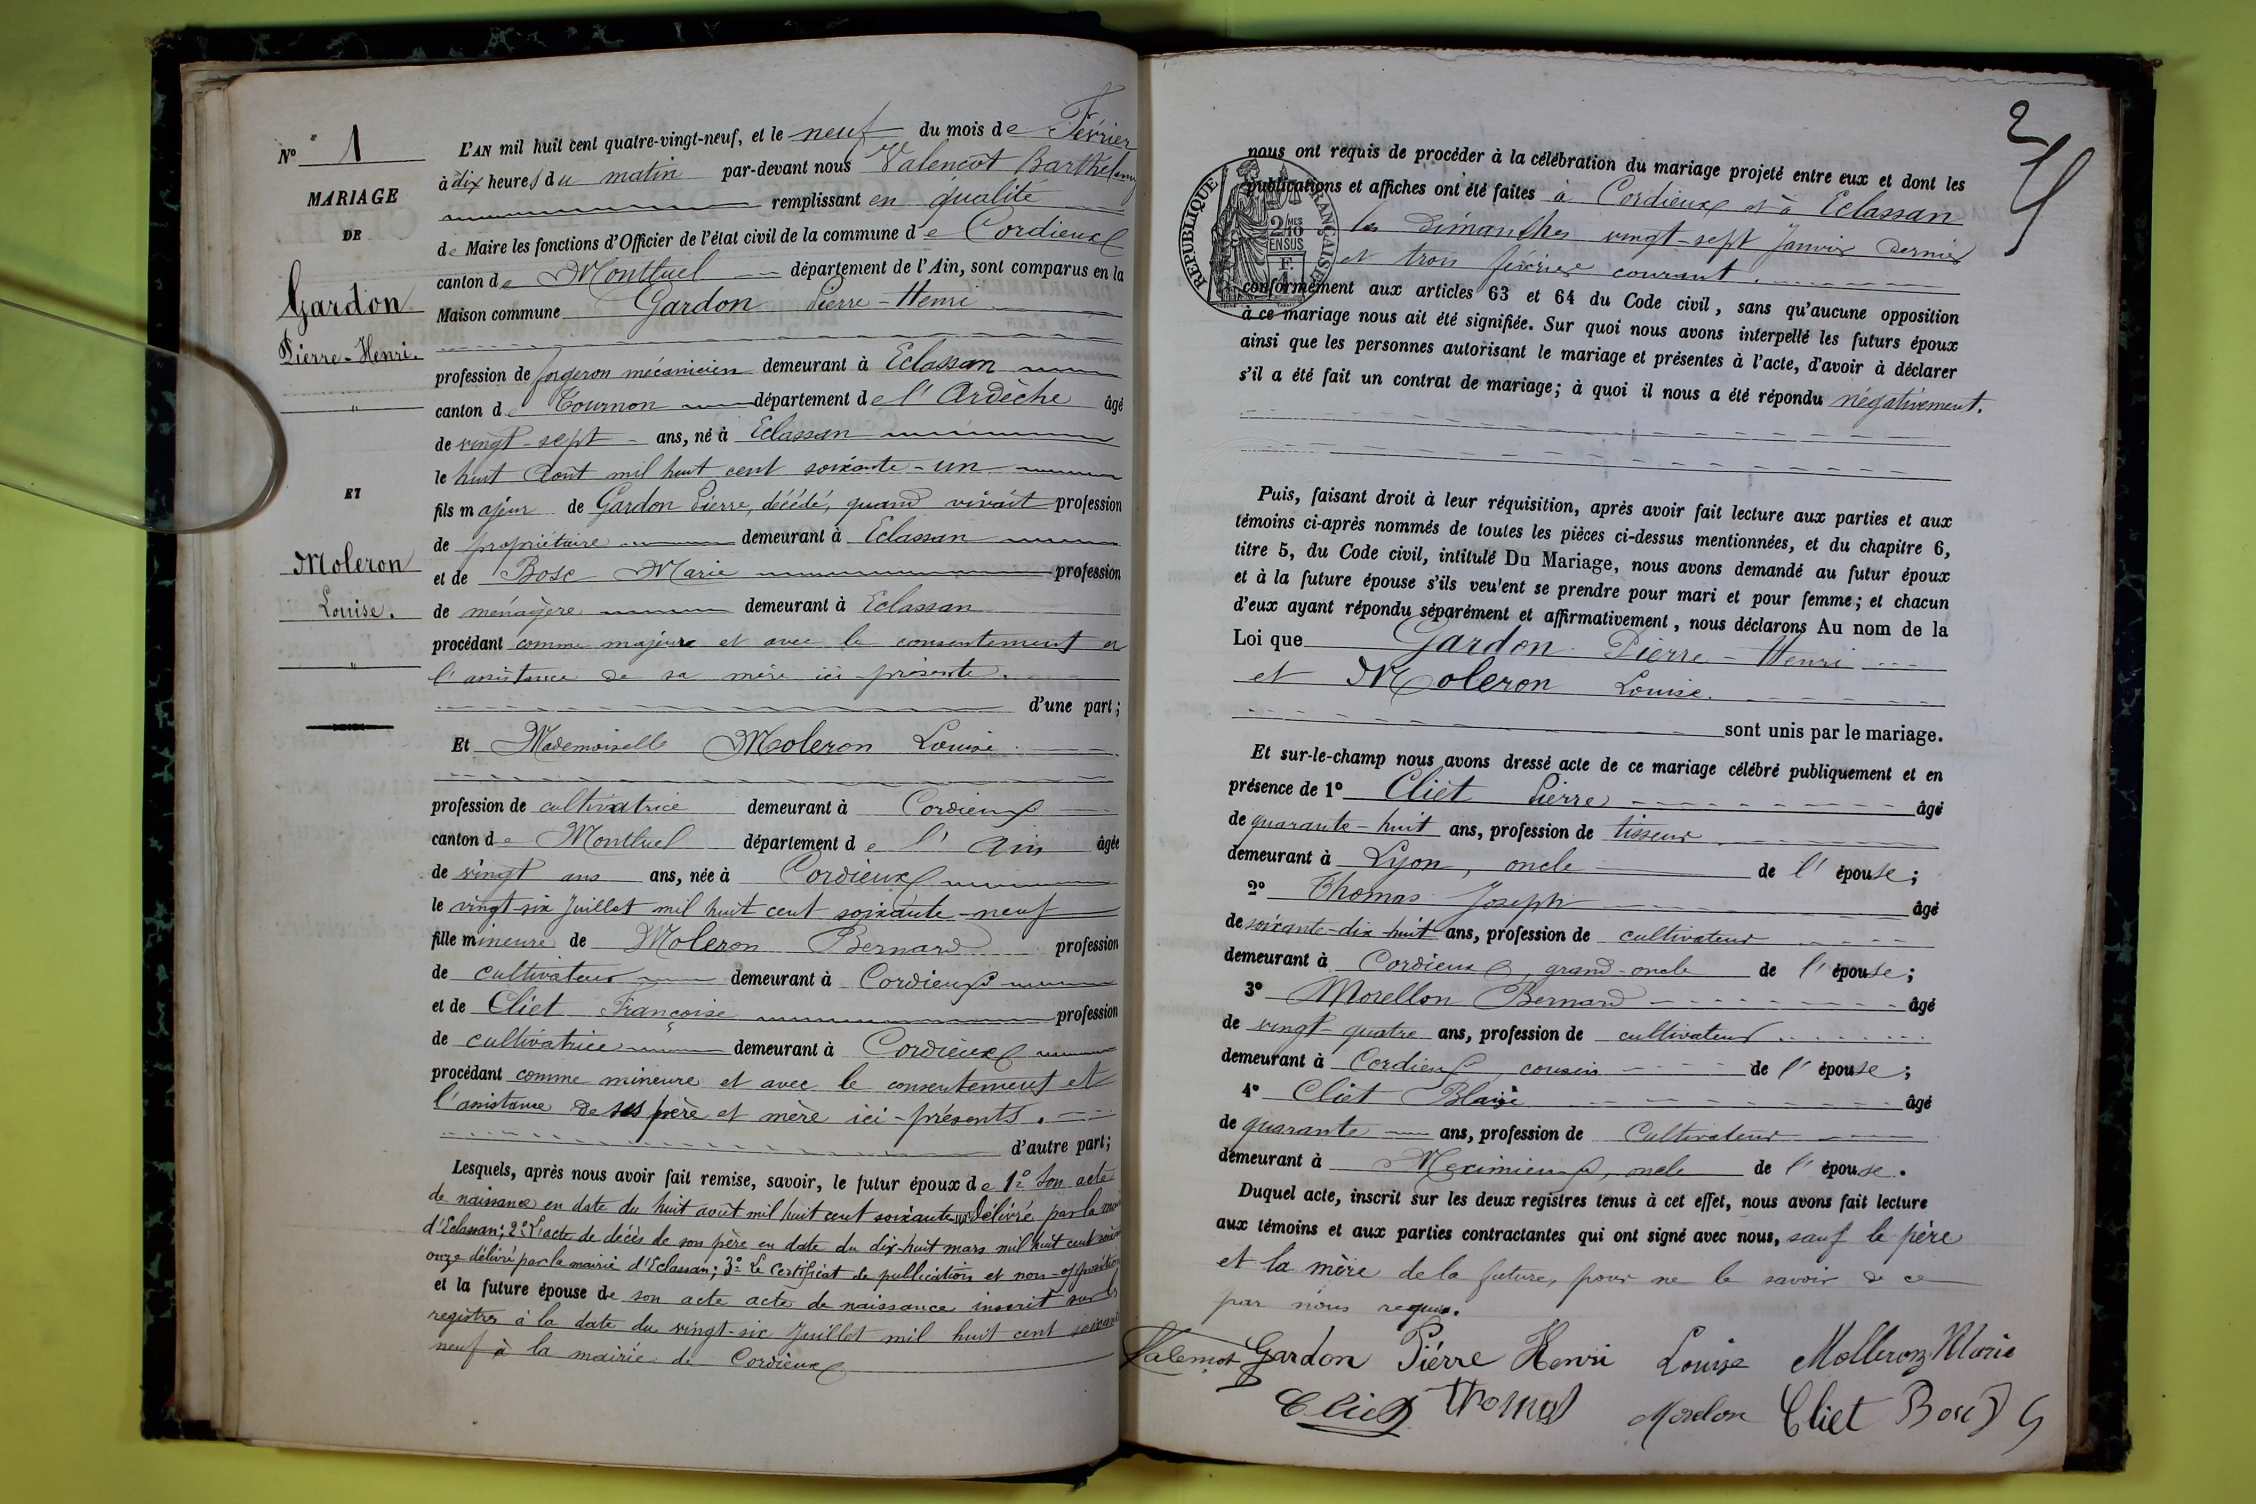 N° 1
MARIAGE
DE
Gardon
Pierre-Henri.
"
ET
Moleron
Louise.
"
L'AN mil huit cent quatre-vingt-neuf, et le neuf du mois de Février
à dix heures du matin par-devant nous Valençot Barthélemy
remplissant en qualité
de Maire les fonctions d'Officier de l'état civil de la commune de Cordieux
canton de Montluel département de l'Ain, sont comparus en la
Maison commune Gardon Pierre-Henri
profession de forgeron mécanicien demeurant à Eclassan
canton de Tournon département de l'Ardèche âgé
de vingt-sept ans, né à Eclassan
le huit Août mil huit cent soixante-un
fils majeur de Gardon Pierre, décédé, quand vivait profession
de propriétaire demeurant à Eclassan
et de Bosc Marie profession
de ménagère demeurant à Eclassan
procédant comme majeur et avec le consentement et
l'assistance de sa mère ici présente.
d'une part;
Et Mademoiselle Moleron Louise
profession de cultivatrice demeurant à Cordieux
canton de Montluel département de l'Ain âgée
de vingt ans ans, née à Cordieux
le vingt-six Juillet mil huit cent soixante-neuf
fille mineure de Moleron Bernard profession
de cultivateur demeurant à Cordieux
et de Cliet Françoise profession
de cultivatrice demeurant à Cordieux
procédant comme mineure et avec le consentement et
l'assistance de ses père et mère ici-présents.
d'autre part;
Lesquels, après nous avoir fait remise, savoir, le futur époux de 1° Son acte
de naissance en date du huit août mil huit cent soixante un délivré par la
d'Eclassan; 2° L'acte de décès de son père en date du dix-huit mars mil huit cent
onze délivré par la mairie d'Eclassan; 3° Le Certificat de publication et non-opposition
et la future épouse de son acte acte de naissance inscrit sur les
registres à la date du vingt-six Juillet mil huit cent soixante
neuf à la mairie de Cordieux
2
RÉPUBLIQUE FRANÇAISE
2/10 MES
EN SUS
F.
1
nous ont requis de procéder à la célébration du mariage projeté entre eux et dont les
publications et affiches ont été faites à Cordieux et à Eclassan
les dimanches vingt-sept Janvier dernier
et trois février courant.
conformément aux articles 63 et 64 du Code civil, sans qu'aucune opposition
à ce mariage nous ait été signifiée. Sur quoi nous avons interpellé les futurs époux
ainsi que les personnes autorisant le mariage et présentes à l'acte, d'avoir à déclarer
s'il a été fait un contrat de mariage; à quoi il nous a été répondu négativement.
Puis, faisant droit à leur réquisition, après avoir fait lecture aux parties et aux
témoins ci-après nommés de toutes les pièces ci-dessus mentionnées, et du chapitre 6,
titre 5, du Code civil, intitulé Du Mariage, nous avons demandé au futur époux
et à la future épouse s'ils veulent se prendre pour mari et pour femme; et chacun
d'eux ayant répondu séparément et affirmativement, nous déclarons Au nom de la
Loi que Gardon Pierre-Henri
et Moleron Louise.
sont unis par le mariage.
Et sur-le-champ nous avons dressé acte de ce mariage célébré publiquement et en
présence de 1° Cliet Pierre âgé
de quarante-huit ans, profession de tisseur
demeurant à Lyon, oncle de l'épouse;
2° Thomas Joseph âgé
de soixante-dix-huit ans, profession de cultivateur
demeurant à Cordieux, grand-oncle de l'épouse;
3° Morellon Bernard âgé
de vingt-quatre ans, profession de cultivateur
demeurant à Cordieux, cousin de l'épouse;
4° Cliet Blaise âgé
de quarante ans, profession de Cultivateur
demeurant à Meximieux, oncle de l'épouse.
Duquel acte, inscrit sur les deux registres tenus à cet effet, nous avons fait lecture
aux témoins et aux parties contractantes qui ont signé avec nous, sauf le père
et la mère de la future, pour ne le savoir de ce
par nous requis.
Valençot Gardon Pierre Henri Louise Molleron Marie
Cliet Thomas Morellon Cliet Bosc